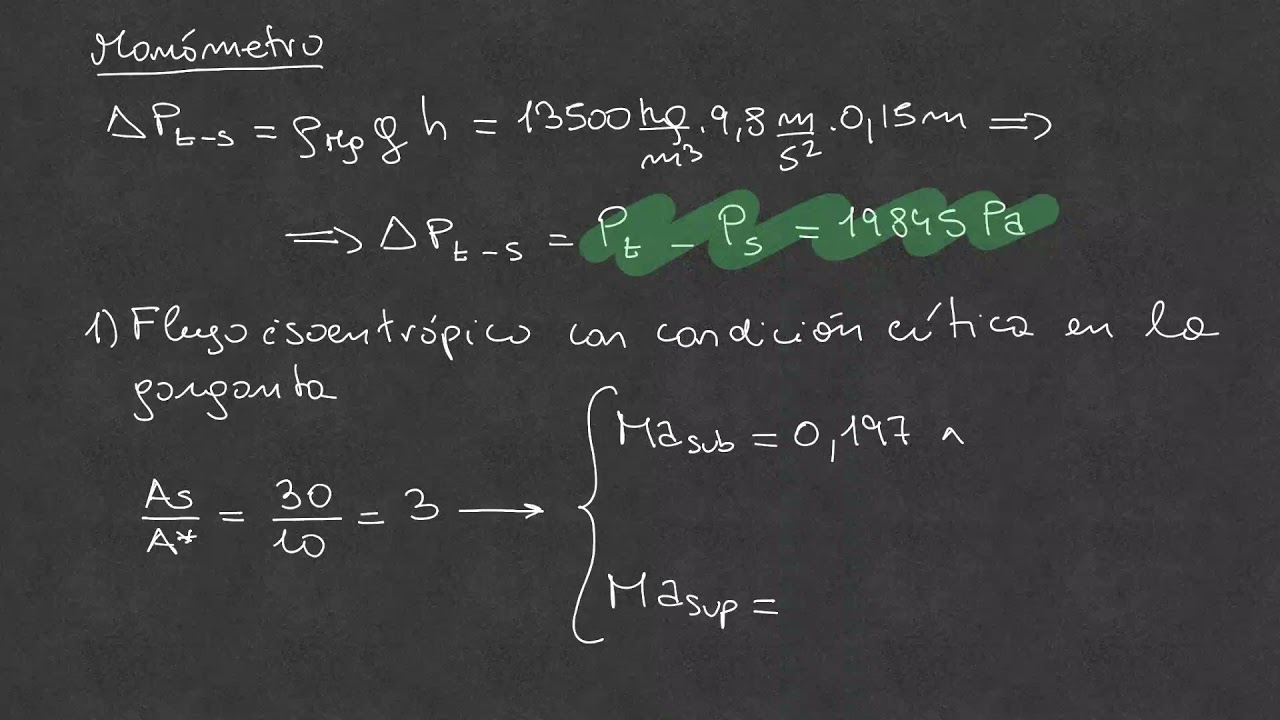 Manómetro
ΔP_{t-s} = ρ_{Hg} g h = 13500 kg/m³ · 9,8 m/s² · 0,15m ⟹
⟹ ΔP_{t-s} = P_t - P_s = 19845 Pa
1) Flujo isoentrópico con condición crítica en la
garganta
Ma_{sub} = 0,197 ^
As/A* = 30/10 = 3 ⟶ {
Ma_{sup} =